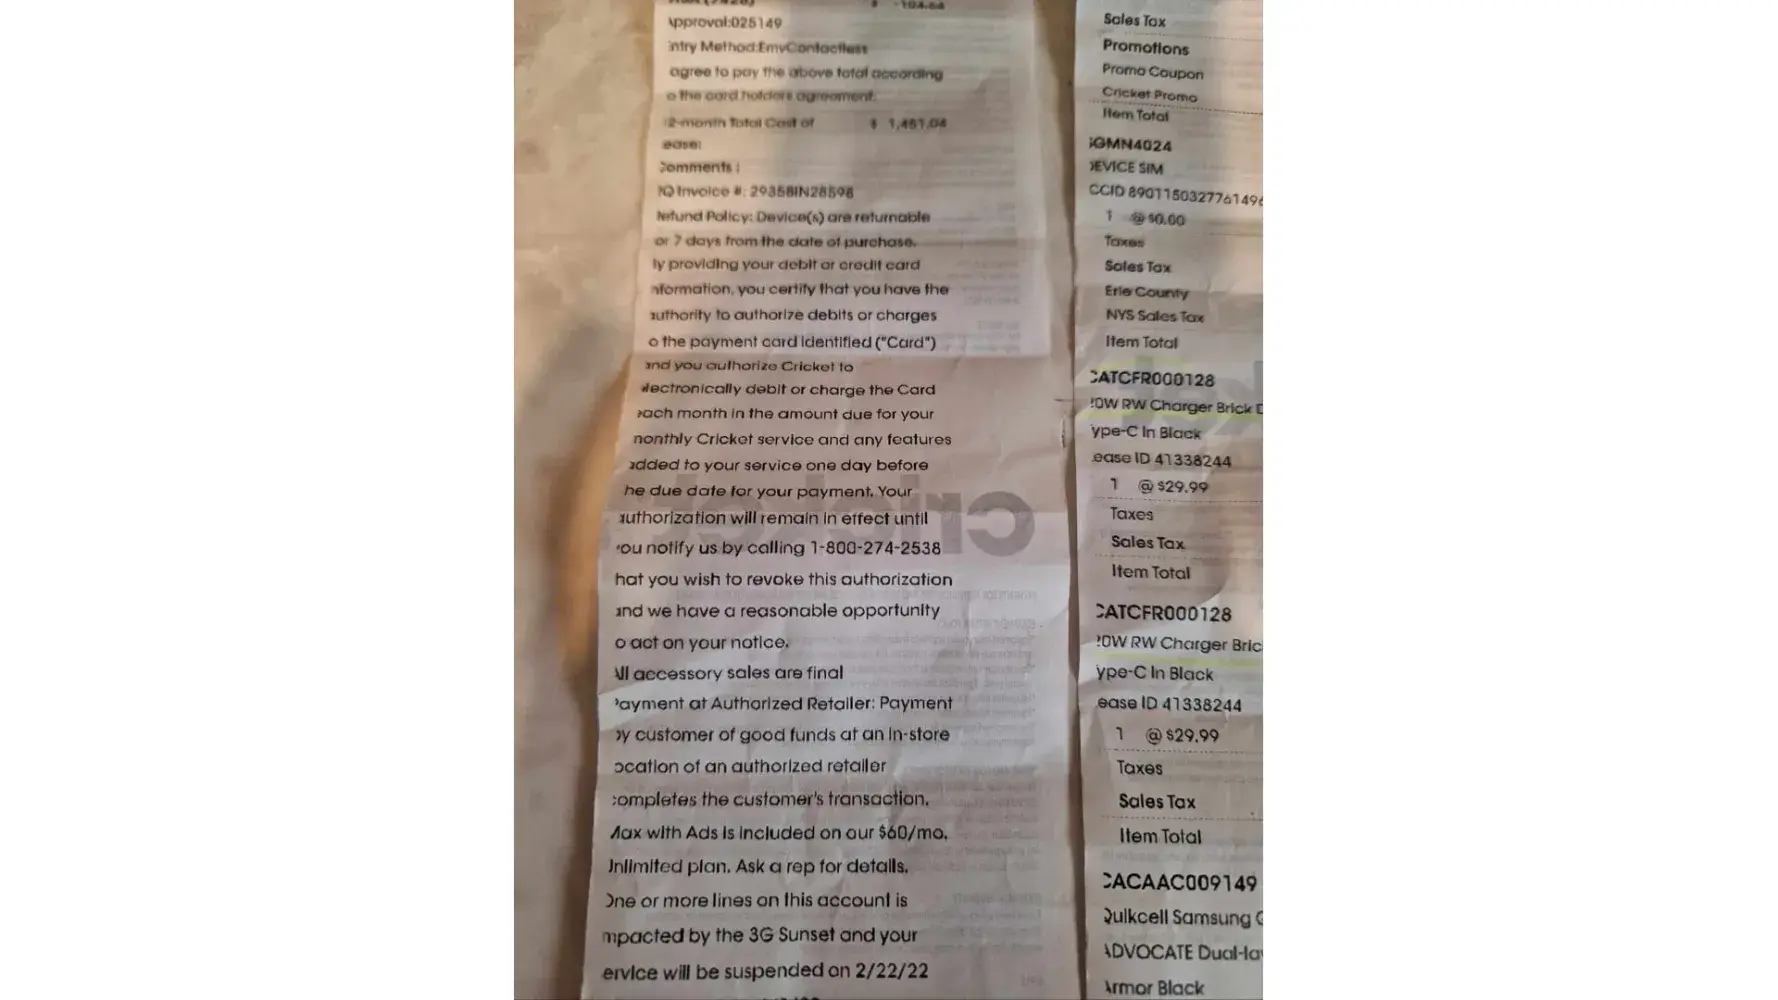 -104.64
Approval:025149
Entry Method:EmvContactless
agree to pay the above total according
o the card holders agreement.
12-month Total Cost of $ 1,451.04
ease:
Comments :
IQ Invoice #: 29358IN28598
Refund Policy: Device(s) are returnable
or 7 days from the date of purchase.
ly providing your debit or credit card
nformation, you certify that you have the
authority to authorize debits or charges
o the payment card identified ("Card")
and you authorize Cricket to
electronically debit or charge the Card
each month in the amount due for your
monthly Cricket service and any features
added to your service one day before
he due date for your payment. Your
authorization will remain in effect until
you notify us by calling 1-800-274-2538
hat you wish to revoke this authorization
and we have a reasonable opportunity
o act on your notice.
All accessory sales are final
Payment at Authorized Retailer: Payment
by customer of good funds at an in-store
ocation of an authorized retailer
completes the customer's transaction.
Max with Ads is included on our $60/mo.
Unlimited plan. Ask a rep for details.
One or more lines on this account is
mpacted by the 3G Sunset and your
ervice will be suspended on 2/22/22
Sales Tax
Promotions
Promo Coupon
Cricket Promo
Item Total
SGMN4024
DEVICE SIM
CCID 8901150327761496
1 @ $0.00
Taxes
Sales Tax
Erie County
NYS Sales Tax
Item Total
CATCFR000128
20W RW Charger Brick D
ype-C In Black
ease ID 41338244
1 @ $29.99
Taxes
Sales Tax
Item Total
CATCFR000128
20W RW Charger Bric
ype-C In Black
ease ID 41338244
1 @ $29.99
Taxes
Sales Tax
Item Total
CACAAC009149
Quikcell Samsung G
ADVOCATE Dual-la
Armor Black